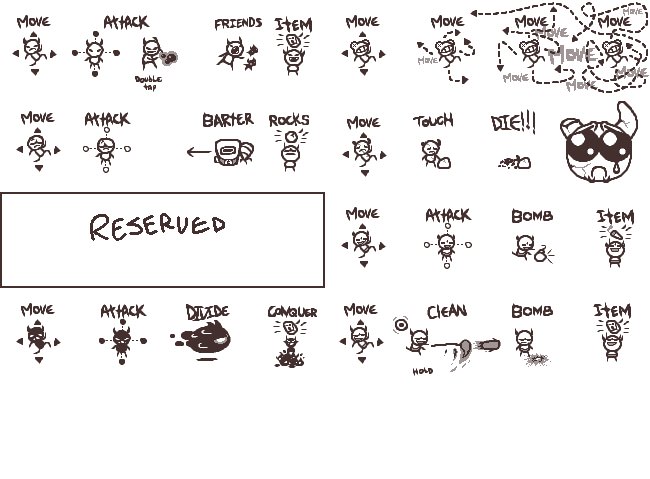 MOVE ATTACK FRIENDS ITEM
DOUBLE TAP
MOVE MOVE MOVE MOVE
MOVE MOVE MOVE MOVE MOVE MOVE
MOVE ATTACK BARTER ROCKS
MOVE TOUCH DIE!!!
RESERVED
MOVE ATTACK BOMB ITEM
MOVE ATTACK DIVIDE CONQUER
MOVE CLEAN BOMB ITEM
HOLD